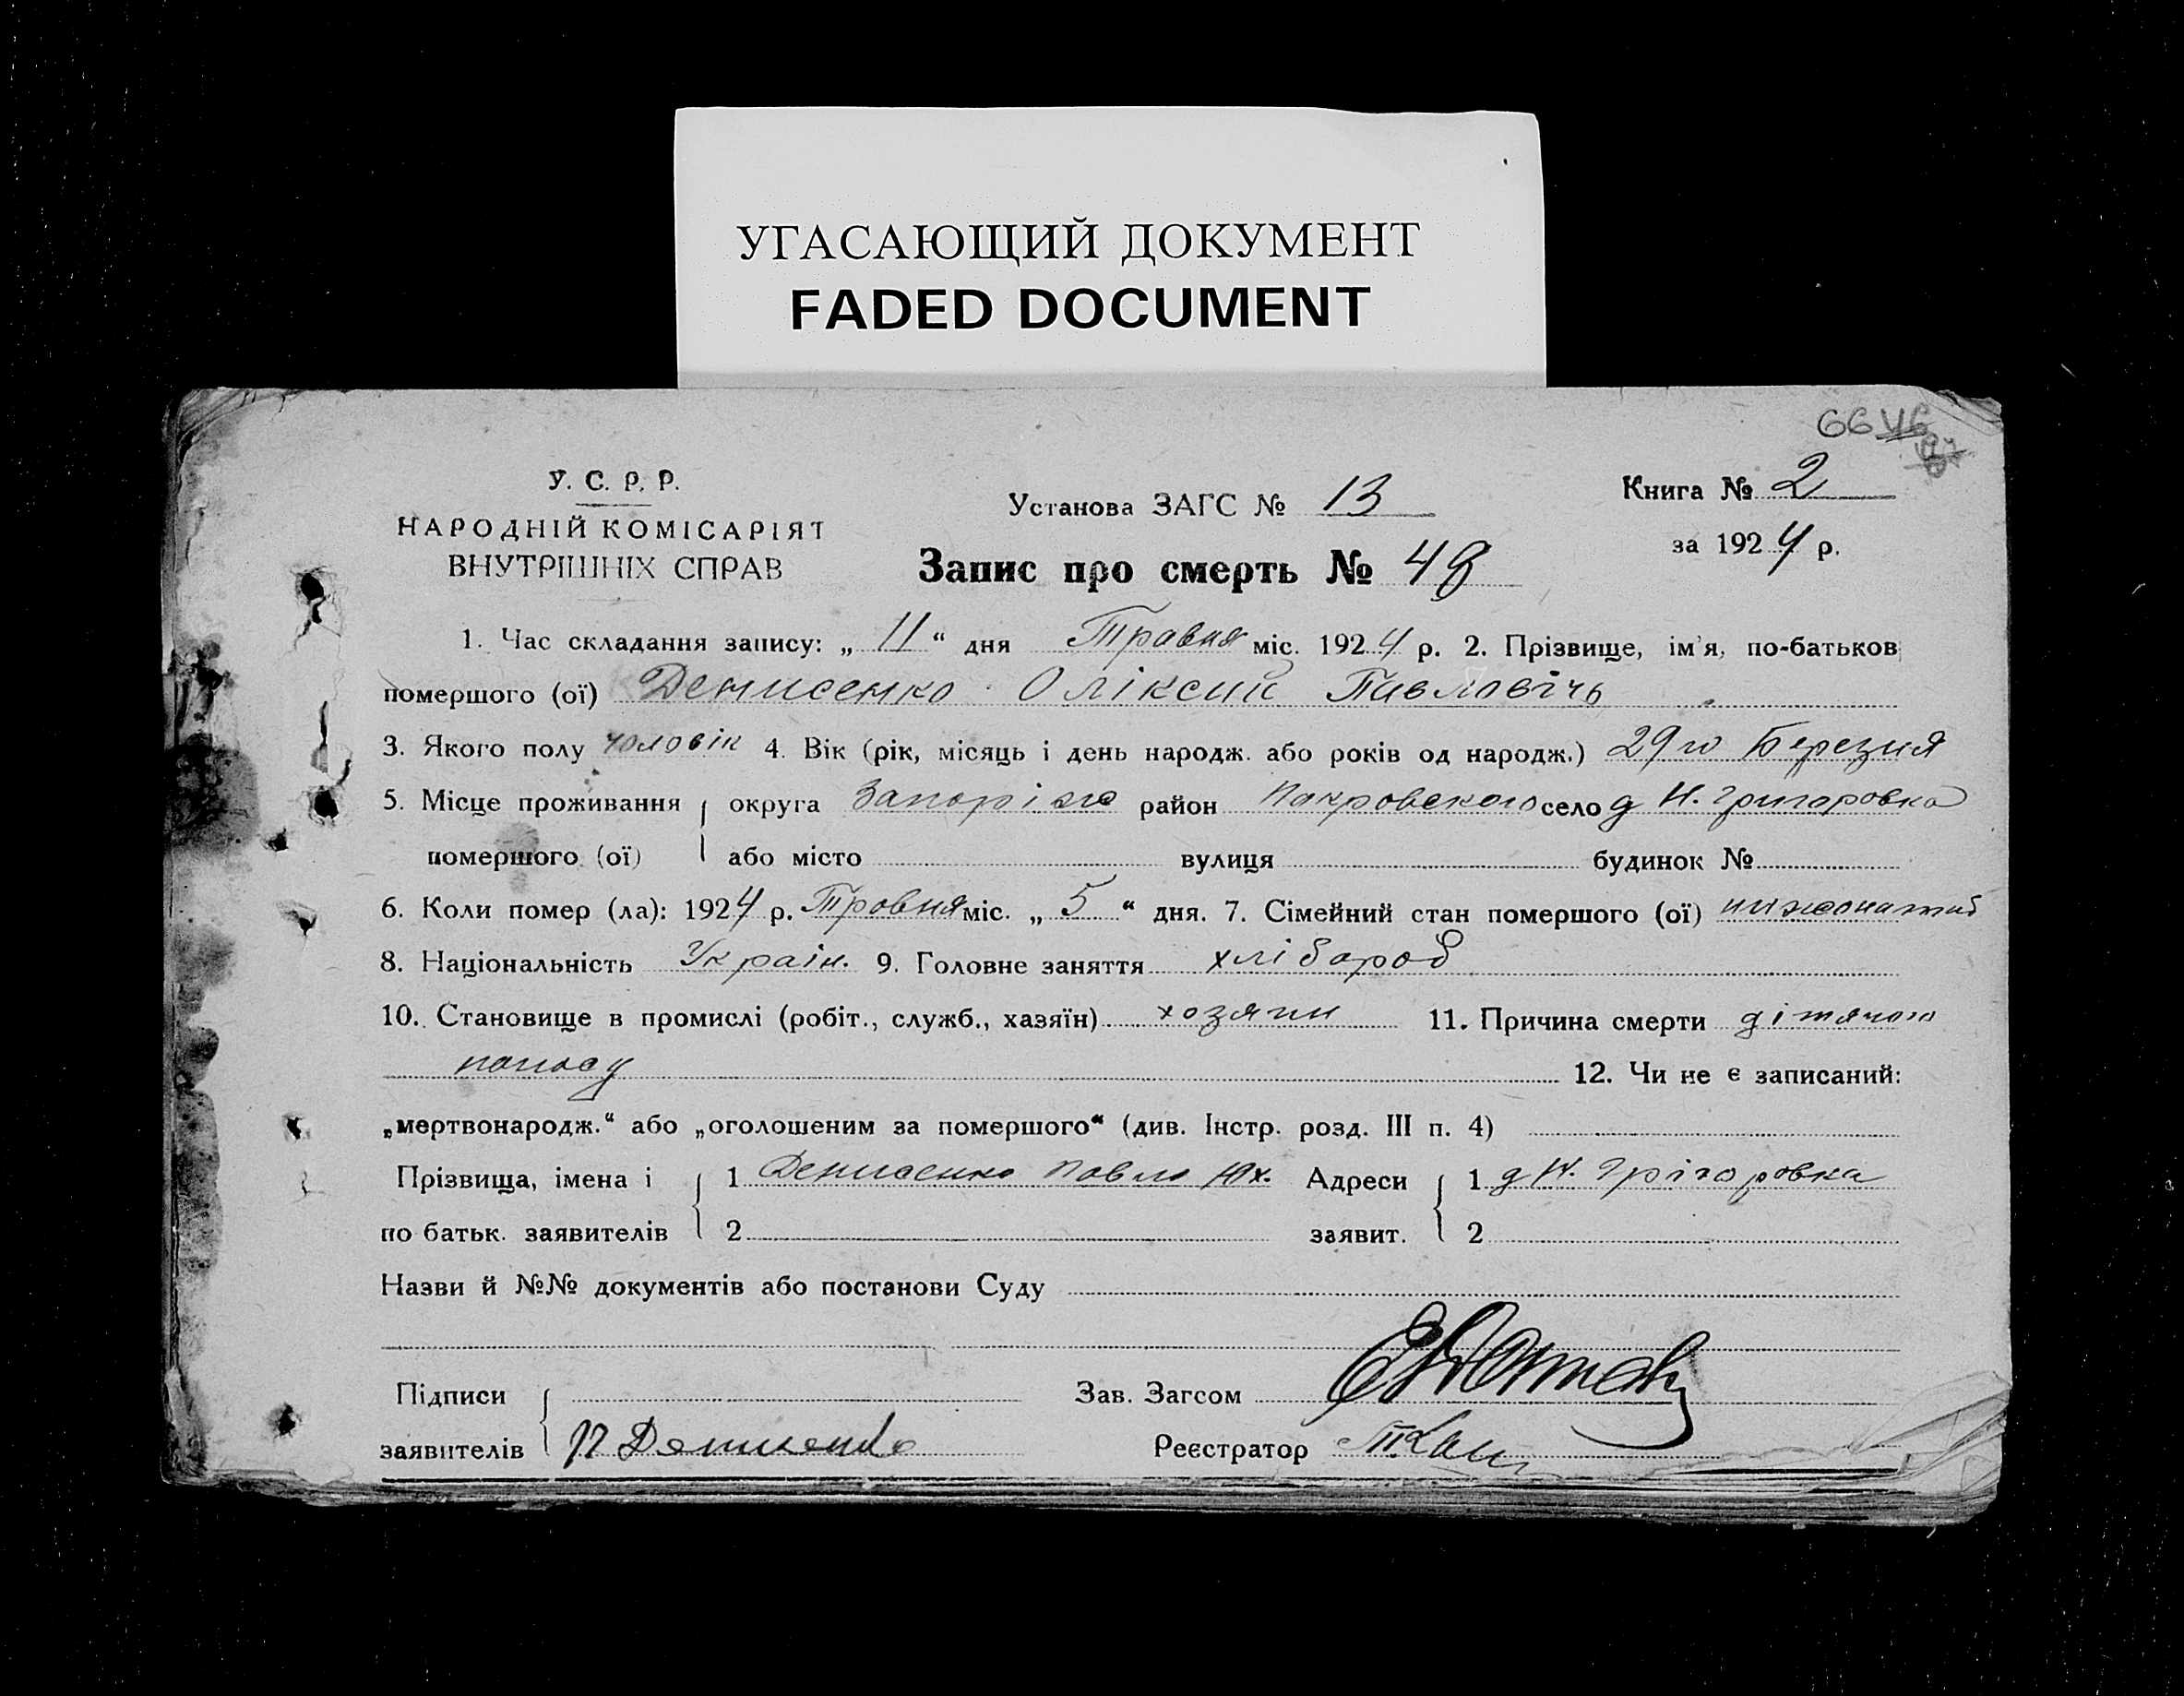 УГАСАЮЩИЙ ДОКУМЕНТ
FADED DOCUMENT
66 46
У. С. Р. Р.
НАРОДНІЙ КОМІСАРІЯТ
ВНУТРІШНІХ СПРАВ
Установа ЗАГС № 13
Книга № 2
за 1924 р.
Запис про смерть № 48
1. Час складання запису: „ 11 “ дня Травня міс. 1924 р. 2. Прізвище, ім'я, по-батьков
помершого (ої) Денисенко Оліксий Павловічь
3. Якого полу чоловік 4. Вік (рік, місяць і день народж. або років од народж.) 29го Березня
5. Місце проживання округа Запоріже район Покровского село д Н. Григоровка
помершого (ої) або місто вулиця будинок №
6. Коли помер (ла): 1924 р. Тровня міс. „ 5 “ дня. 7. Сімейний стан помершого (ої) нижонатий
8. Національність Україн. 9. Головне заняття хлібароб
10. Становище в промислі (робіт., служб., хазяїн) хозяин 11. Причина смерти дітячого
поносу 12. Чи не є записаний:
„мертвонародж.“ або „оголошеним за помершого“ (див. Інстр. розд. III п. 4)
Прізвища, імена і 1 Денисенко Повло Адреси 1 д Н. Грігоровка
по батьк. заявителів 2 заявит. 2
Назви й №№ документів або постанови Суду
Підписи Зав. Загсом
заявителів П Денисенко Реєстратор